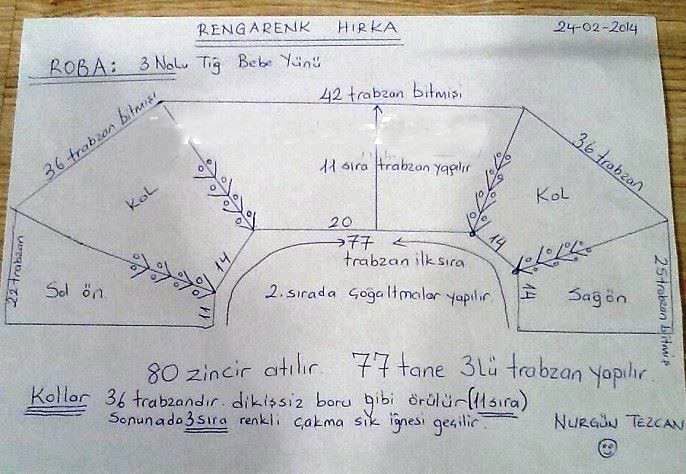 RENGARENK HIRKA
24-02-2014
ROBA: 3 Nolu Tığ Bebe Yünü
42 trabzan bitmişi
36 trabzan bitmişi
36 trabzan
11 sıra trabzan yapılır
Kol
Kol
20
77
trabzan ilk sıra
14
14
22 trabzan
Sol ön
11
2. sırada çoğaltmalar yapılır.
14
Sağ ön
25 trabzan bitmiş
80 zincir atılır. 77 tane 3lü trabzan yapılır.
Kollar 36 trabzandır. dikişsiz boru gibi örülür (11 sıra)
Sonunada 3 sıra renkli çakma sık iğnesi geçilir.
NURGÜN TEZCAN